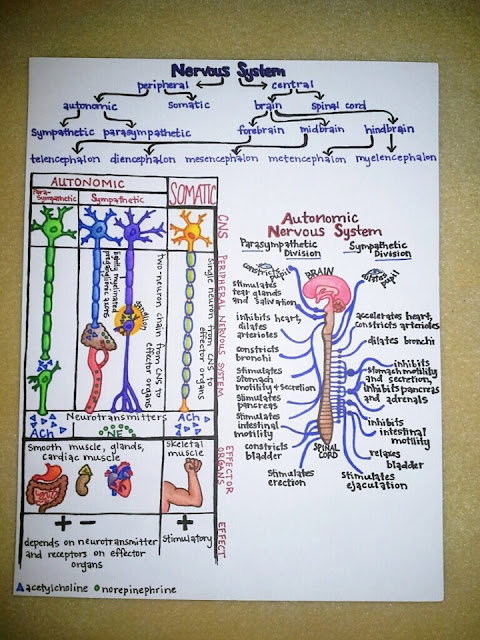 Nervous System
peripheral central
autonomic somatic brain spinal cord
Sympathetic parasympathetic forebrain midbrain hindbrain
telencephalon diencephalon mesencephalon metencephalon myelencephalon
AUTONOMIC
SOMATIC
Para-
Sympathetic
Sympathetic
CNS
PERIPHERAL NERVOUS SYSTEM
EFFECTOR ORGANS
EFFECT
lightly myelinated
preganglionic axons
ganglion
two-neuron chain from CNS to
effector organs
Single neuron from CNS to
effector organs
Neurotransmitters
ACh
NE
ACh
Smooth muscle, glands,
cardiac muscle
skeletal
muscle
+ -
+
depends on neurotransmitter
and receptors on effector
organs
Stimulatory
acetylcholine norepinephrine
Autonomic
Nervous System
Parasympathetic
Division
Sympathetic
Division
constricts
pupil
BRAIN
dilates
pupil
stimulates
tear glands
and salivation
inhibits heart,
dilates
arterioles
constricts
bronchi
Stimulates
stomach
motility & secretion
Stimulates
pancreas
Stimulates
intestinal
motility
constricts
bladder
Stimulates
erection
SPINAL
CORD
accelerates heart,
constricts arterioles
dilates bronchi
inhibits
stomach motility
and secretion,
inhibits pancreas
and adrenals
inhibits
intestinal
motility
relaxes
bladder
stimulates
ejaculation